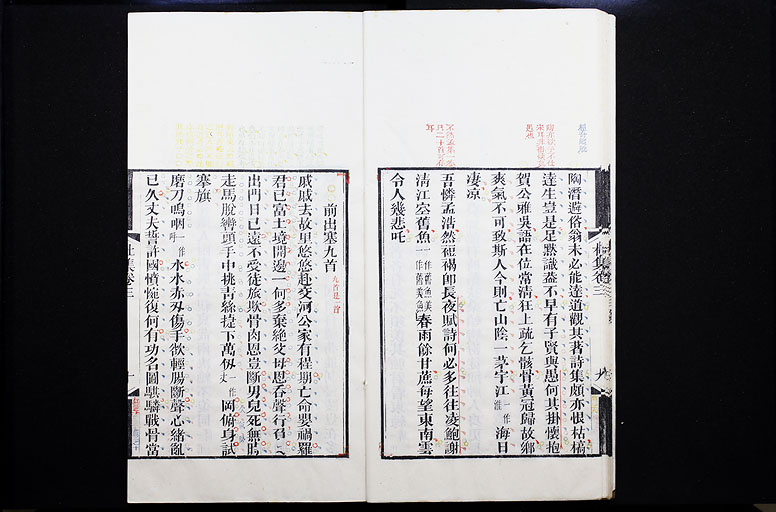 陶潛避俗翁未必能達道觀其著詩集頗亦恨枯槁
達生豈是足默識葢不早有子賢與愚何其掛懷抱
賀公雅吳語在位常清狂上疏乞骸骨黃冠歸故鄉
爽氣不可致斯人今則亡山陰一茅宇江一作淮海日
凄凉
吾憐孟浩然裋褐即長夜賦詩何必多往往凌鮑謝
清江空舊魚一作舊魚美一作舊美魚春雨餘甘蔗每望東南雲
令人幾悲吒
杜集卷三
九
前出塞九首
戚戚去故里悠悠赴交河公家有程期亡命嬰禍羅
君已富土境開邊一何多棄絕父母恩吞聲行負戈
出門日已遠不受徒旅欺骨肉恩豈斷男兒死無時
走馬脫轡頭手中挑青絲捷下萬仞一作丈岡俯身試
搴旗
磨刀嗚咽一作呼水水赤刃傷手欲輕腸斷聲心緒亂
已久丈夫誓許國憤惋復何有功名圖騏驎戰骨當
杜集卷三
十